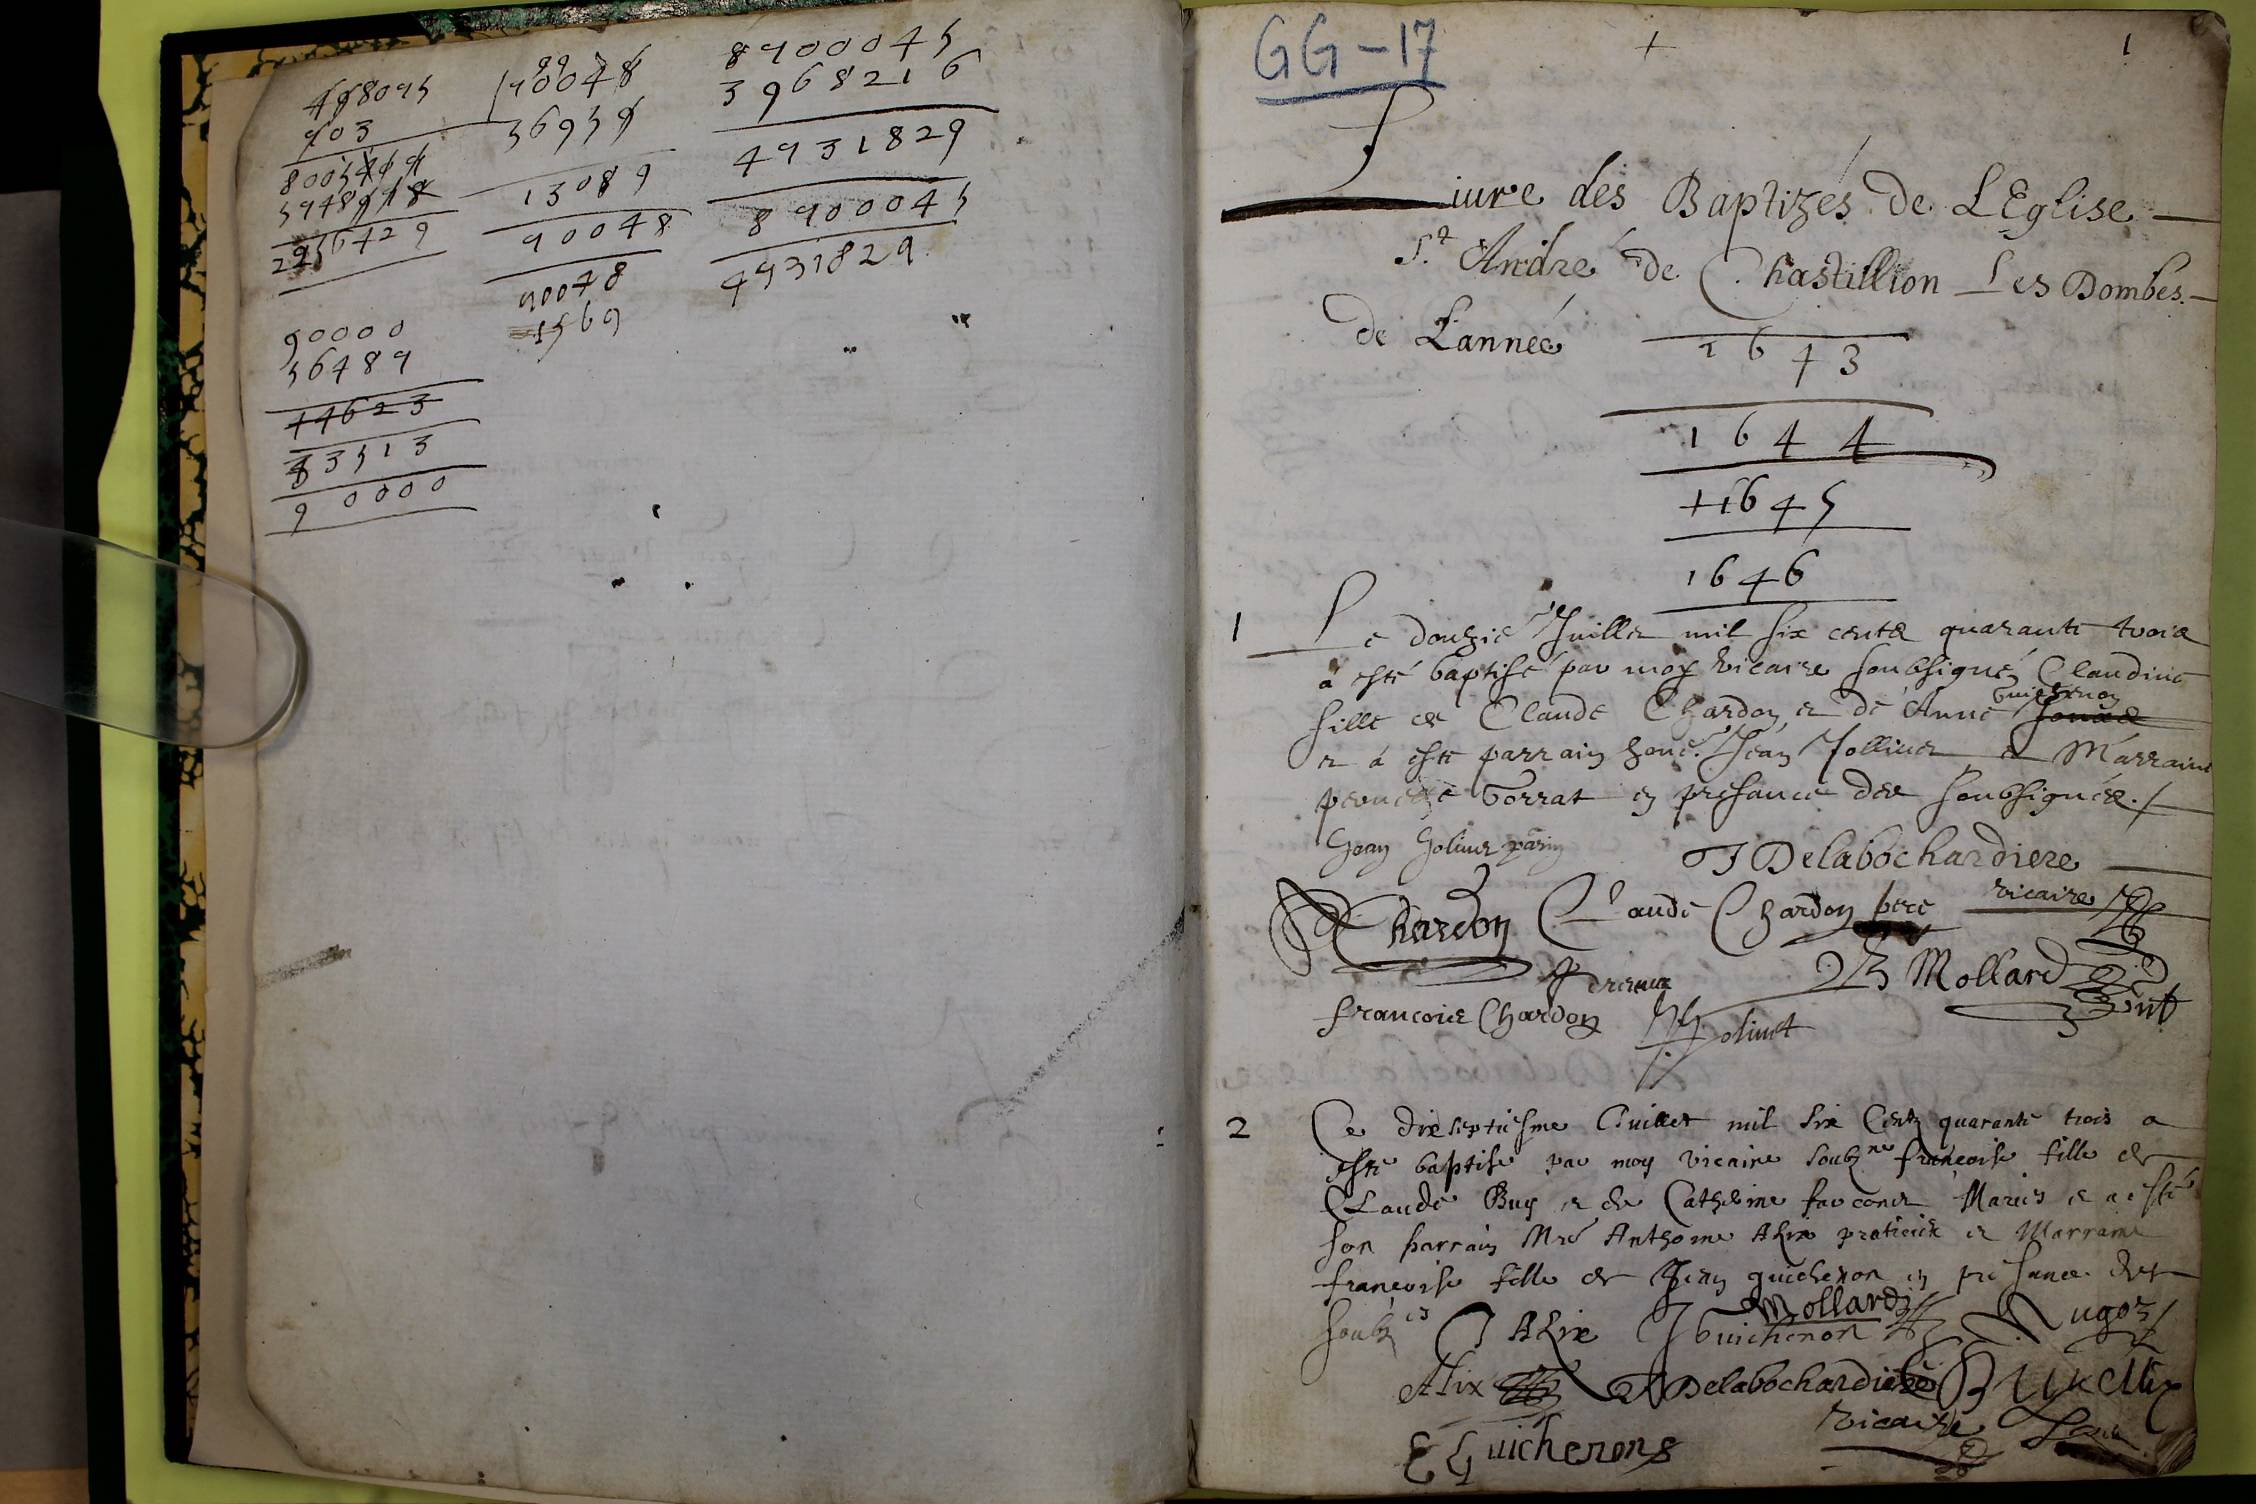 498095
903
8003499
5948918
2956429
99
90048
56959
13089
90048
90048
1569
8900045
3968216
4931829
8900045
4931829
90000
56489
44623
33513
90000
GG-17
1
Liure des Baptizés de LEglise
St André de Chastillion Les Dombes
de Lannée 1643
1644
1645
1646
1 Le douzie Juillet mil six cents quarante trois
a esté baptisé par moy vicaire soubsigné Claudine
fille de Claude Chardon et de Anne Guichenon
et a esté parrain hone. Jean Jollivet et Marraine
Borrat en presance des soubsignés
Jean Jolivet parin
Delabochardiere
vicaire
Chardon Claude Chardon pere
Mollard
francois Chardon Jolivet
2 Ce dixseptiesme Juillet mil six Centz quarante trois a
esté baptisé par moy vicaire soubzne francoise fille de
Claude Buy et de Catherine Maries et a esté
son parrain Mre Anthoine Alix praticien et Marrame
francoise fille de Jean guichenon en presance des
soubzes C Alix J Guichenon Mollard
Alix Delabochardiere
vicaire
E Guichenons